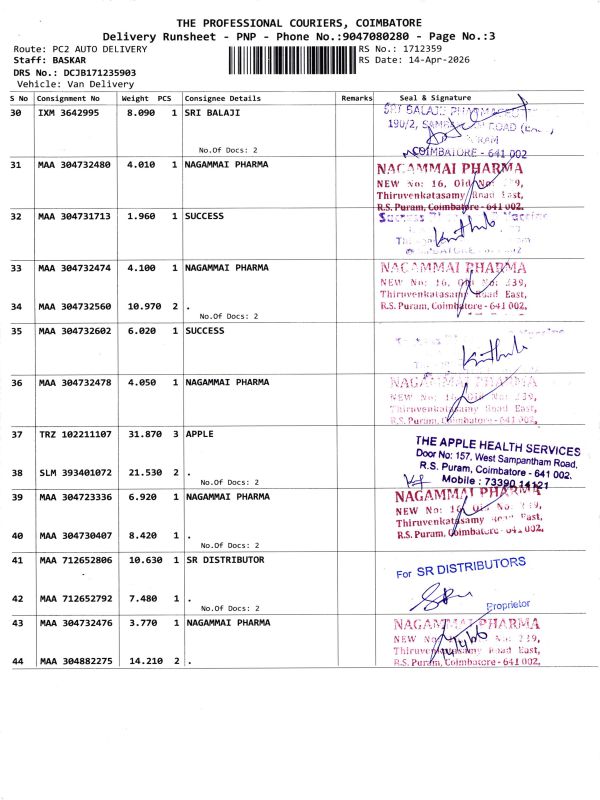 THE PROFESSIONAL COURIERS, COIMBATORE
Delivery Runsheet - PNP - Phone No.:9047080280 - Page No.:3
Route: PC2 AUTO DELIVERY RS No.: 1712359
Staff: BASKAR RS Date: 14-Apr-2026
DRS No.: DCJB171235903
Vehicle: Van Delivery
S No Consignment No Weight PCS Consignee Details Remarks Seal & Signature
30 IXM 3642995 8.090 1 SRI BALAJI
SRI BALAJI
190/2, ROAD
No.Of Docs: 2
COIMBATORE - 641 002
31 MAA 304732480 4.010 1 NAGAMMAI PHARMA
NAGAMMAI PHARMA
NEW No: 16, Old No:
Thiruvenkatasamy Road East,
R.S. Puram, Coimbatore - 641 002.
32 MAA 304731713 1.960 1 SUCCESS
33 MAA 304732474 4.100 1 NAGAMMAI PHARMA
NAGAMMAI PHARMA
NEW No: 16, Old No: 239,
Thiruvenkatasamy Road East,
34 MAA 304732560 10.970 2 .
R.S. Puram, Coimbatore - 641 002,
No.Of Docs: 2
35 MAA 304732602 6.020 1 SUCCESS
36 MAA 304732478 4.050 1 NAGAMMAI PHARMA
NAGAMMAI PHARMA
NEW No: 16, Old No: 239,
Thiruvenkatasamy Road East,
R.S. Puram, Coimbatore - 641 002,
37 TRZ 102211107 31.870 3 APPLE
THE APPLE HEALTH SERVICES
Door No: 157, West Sampantham Road,
R.S. Puram, Coimbatore - 641 002.
38 SLM 393401072 21.530 2 .
Mobile : 73390 14121
No.Of Docs: 2
39 MAA 304723336 6.920 1 NAGAMMAI PHARMA
NAGAMMAI PHARMA
NEW No: 16, Old No: 239,
Thiruvenkatasamy Road East,
40 MAA 304730407 8.420 1 .
R.S. Puram, Coimbatore - 641 002,
No.Of Docs: 2
41 MAA 712652806 10.630 1 SR DISTRIBUTOR
For SR DISTRIBUTORS
42 MAA 712652792 7.480 1 .
Proprietor
No.Of Docs: 2
43 MAA 304732476 3.770 1 NAGAMMAI PHARMA
NAGAMMAI PHARMA
NEW No: 239,
Thiruvenkatasamy Road East,
44 MAA 304882275 14.210 2 .
R.S. Puram, Coimbatore - 641 002,